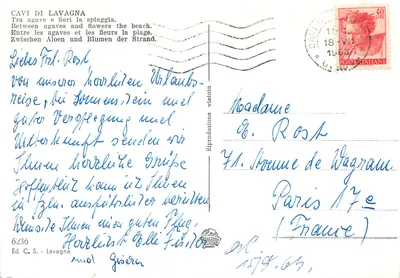 CAVI DI LAVAGNA
Tra agave e fiori la spiaggia.
Between agaves and flowers the beach.
Entre les agaves et les fleurs la plage.
Zwischen Aloen und Blumen der Strand.
Liebes Frl. Rost
von unserer herrlichen Urlaubs-
reise, bei Sonnenschein und
guter Verpflegung und
Unterkunft senden wir
Ihnen herzliche Grüße
Hoffentlich kann ich Ihnen
ausführlicher berichten
Ihnen guten
Herzlichst Elli
und
6236
Ed. C. S. - Lavagna
Riproduzione vietata
18 VII
40
POSTE ITALIANE
Madame
E. Rost
71. Avenue de Wagram
Paris 17e
(France)